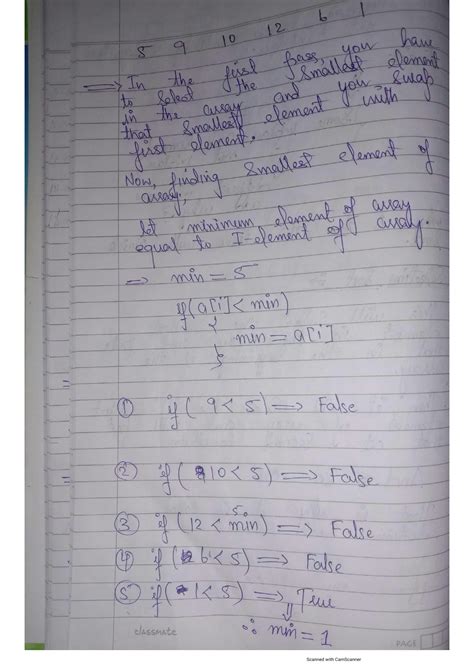 5 9 10 12 6 1
⟹ In the first pass, you have
to select the smallest element
in the array and you swap
that smallest element with
first element.
Now, finding smallest element of
array,
let minimum element of array
equal to I-element of array.
⇒ min = 5
if(a[i]<min)
{
min = a[i]
}
① if ( 9 < 5 ) ⟹ False
② if ( 10 < 5 ) ⟹ False
5
③ if ( 12 < min ) ⟹ False
④ if ( 6 < 5 ) ⟹ False
⑤ if ( 1 < 5 ) ⟹ True
⇓
∴ min = 1
classmate
PAGE
Scanned with CamScanner